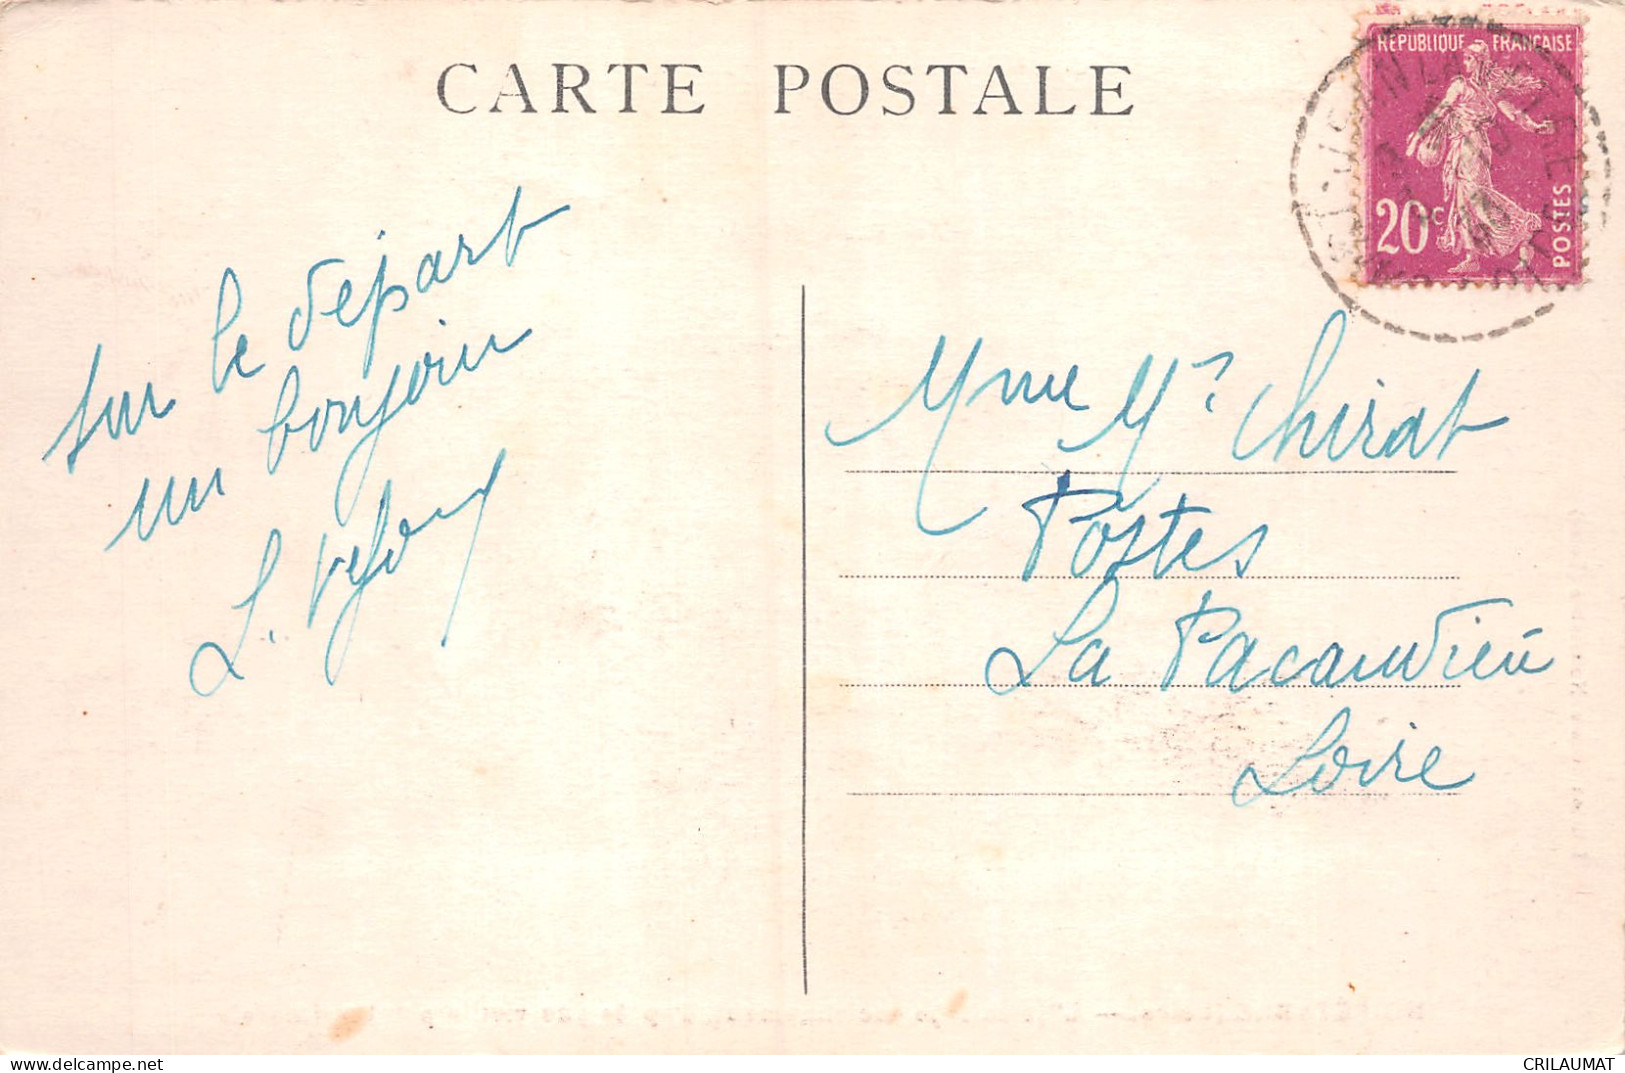 CARTE POSTALE
RÉPUBLIQUE FRANÇAISE
20c
POSTES
sur le départ
un bonjour
L.
Mme Mr Chirat
Postes
La Pacaudière
Loire
www.delcampe.net
CRILAUMAT